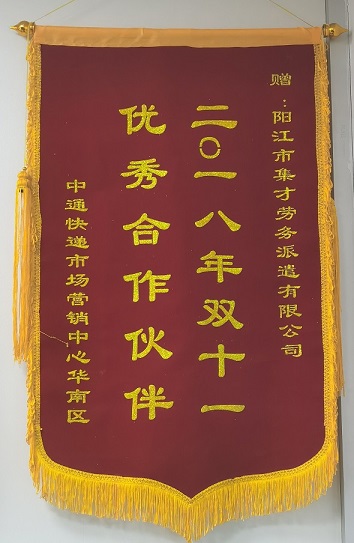 赠：阳江市集才劳务派遣有限公司
二〇一八年双十一
优秀合作伙伴
中通快递市场营销中心华南区